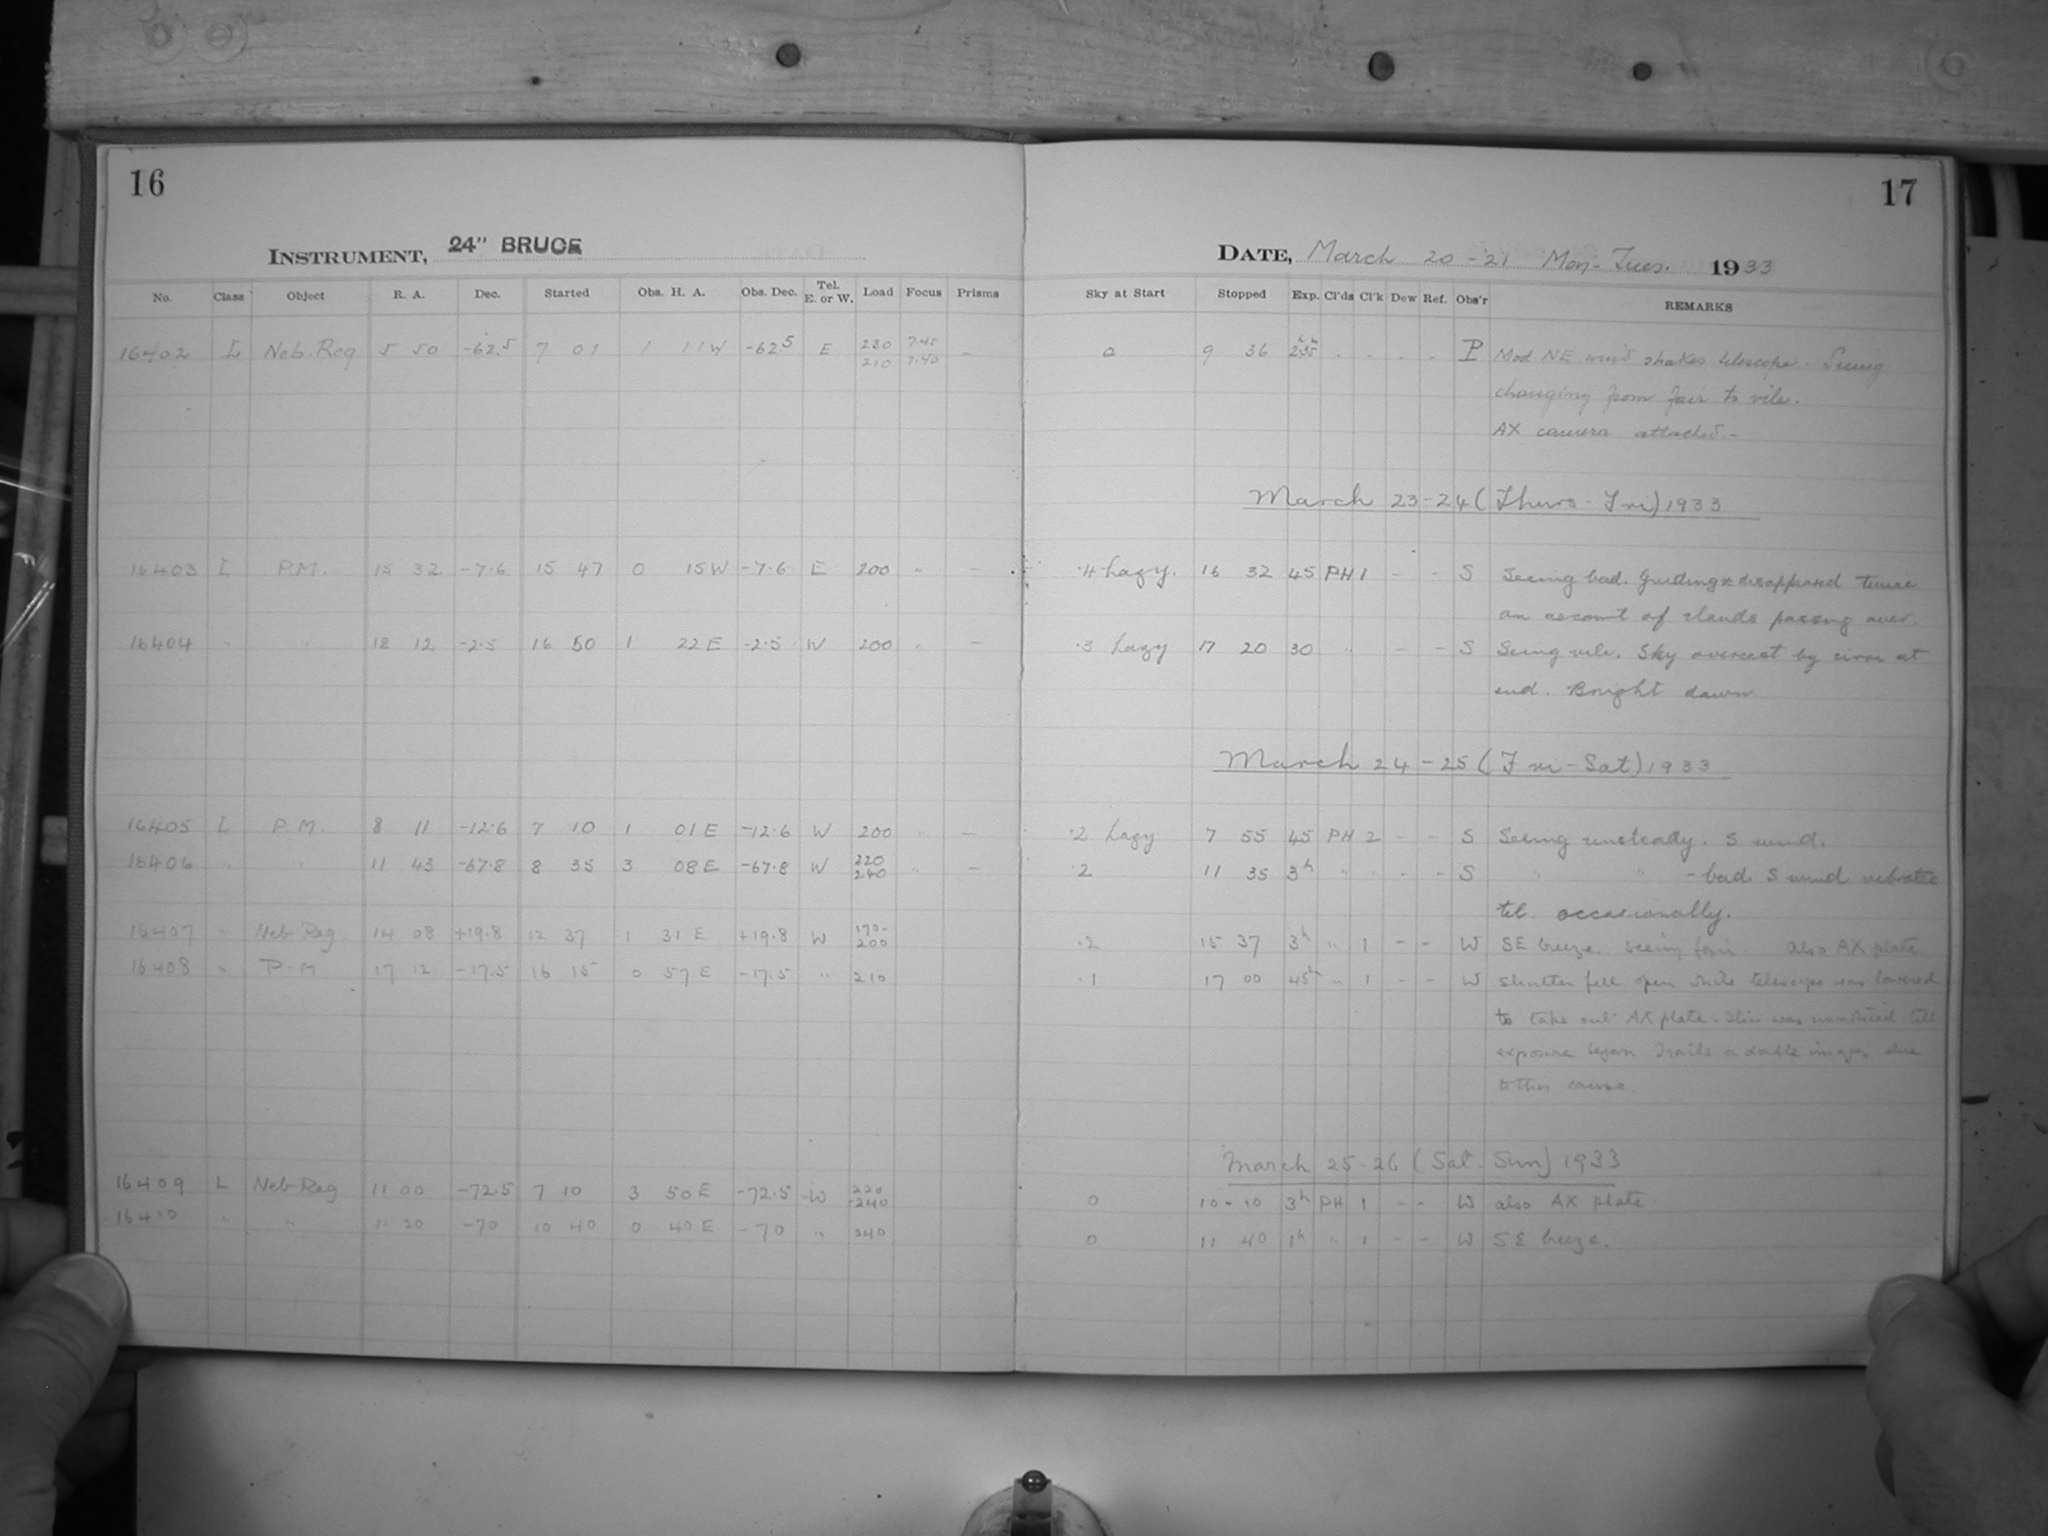 16
17
INSTRUMENT, 24" BRUCE
DATE, March 20-21 Mon-Tues. 1933
No. Class Object R. A. Dec. Started Obs. H. A. Obs. Dec. Tel. E. or W. Load Focus Prisms Sky at Start Stopped Exp. Cl'ds Cl'k Dew Ref. Obs'r REMARKS
16402 L Neb. Reg 5 50 -62.5 7 01 1 11W -62.5 E 230 7.45 - 0 9 36 2h35m . - - - P Mod NE wind shakes telescope. Seeing
210 7.40
changing from fair to vile.
AX camera attached-
March 23-24 (Thurs-Fri) 1933
16403 L P.M. 15 32 -7.6 15 47 0 15W -7.6 E 200 " - .4 hazy. 16 32 45 PH 1 - - S Seeing bad. Guiding * disappeared twice
on account of clouds passing over.
16404 " " 18 12 -2.5 16 50 1 22E -2.5 W 200 " - .3 hazy 17 20 30 " - - S Seeing vile. Sky overcast by cirri at
end. Bright dawn
March 24-25 (Fri-Sat) 1933
16405 L P.M. 8 11 -12.6 7 10 1 01E -12.6 W 200 " - .2 hazy 7 55 45 PH 2 - - S Seeing unsteady. S wind.
16406 " " 11 43 -67.8 8 35 3 08E -67.8 W 220 240 " - .2 11 35 3h " " - - S " " - bad S wind vibrates
tel. occasionally.
16407 " Neb Reg 14 08 +19.8 12 37 1 31E +19.8 W 170-200 .2 15 37 3h " 1 - - W SE breeze seeing fair. also AX plate
16408 " P.M 17 12 -17.5 16 15 0 57E -17.5 " 210 .1 17 00 45m " 1 - - W Shutter fell open while telescope was lowered
to take out AX plate. This was unnoticed till
exposure began double images due
to this cause.
March 25-26 (Sat-Sun) 1933
16409 L Neb Reg 11 00 -72.5 7 10 3 50E -72.5 W 220-240 0 10-10 3h PH 1 - - W also AX plate.
16410 " " 11 20 -70 10 40 0 40E -70 " 240 0 11 40 1h " 1 - - W SE breeze.